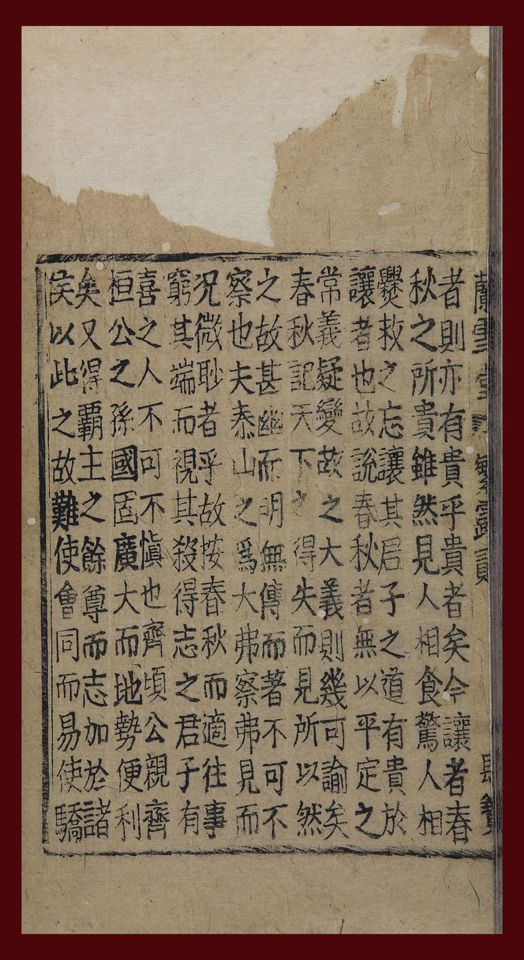 蘭雪堂
繁露貳
者則亦有貴乎貴者矣今讓者春
秋之所貴雖然見人相食驚人相
爨救之忘讓其君子之道有貴於
讓者也故說春秋者無以平定之
常義疑變故之大義則幾可諭矣
春秋記天下之得失而見所以然
之故甚幽而明無傳而著不可不
察也夫泰山之爲大弗察弗見而
况微眇者乎故按春秋而適往事
窮其端而視其殺得志之君子有
喜之人不可不愼也齊頃公親齊
桓公之孫國固廣大而地勢便利
矣又得霸主之餘尊而志加於諸
矦以此之故難使會同而易使驕